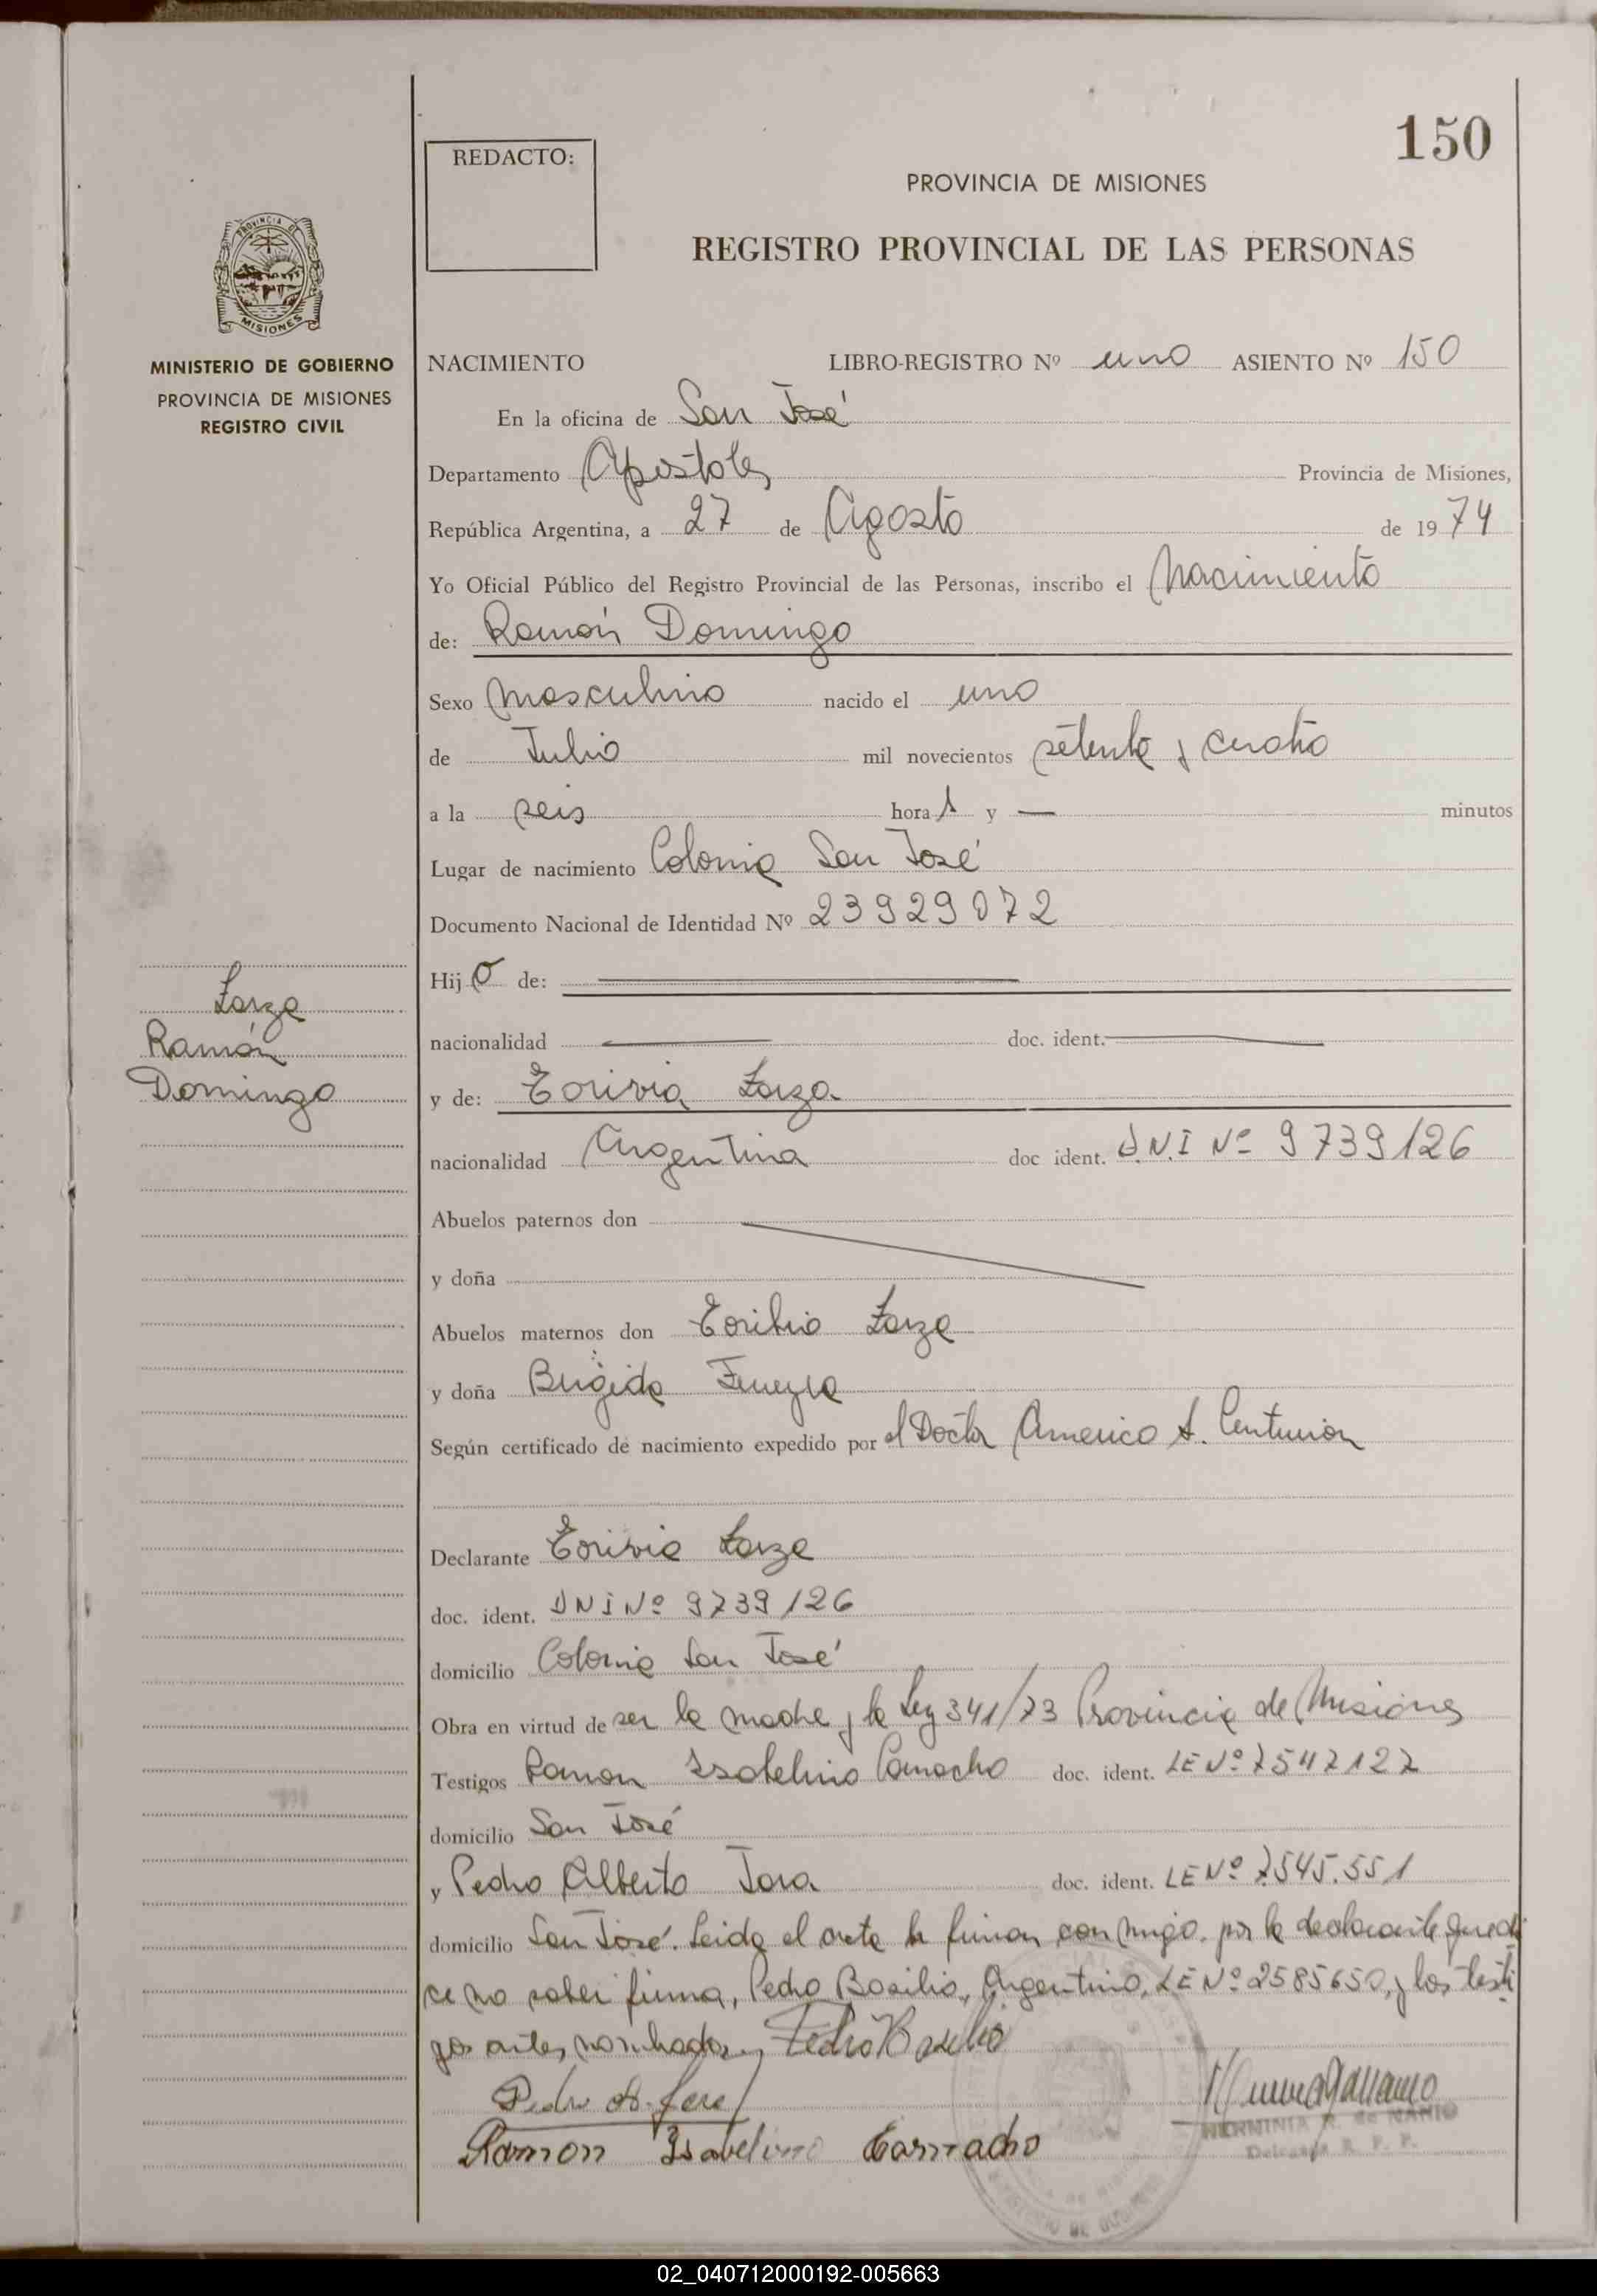 150
REDACTO:
PROVINCIA DE MISIONES
REGISTRO PROVINCIAL DE LAS PERSONAS
PROVINCIA DE
MISIONES
MINISTERIO DE GOBIERNO
PROVINCIA DE MISIONES
REGISTRO CIVIL
NACIMIENTO LIBRO-REGISTRO Nº uno ASIENTO Nº 150
En la oficina de San José
Departamento Apostoles Provincia de Misiones,
República Argentina, a 27 de Agosto de 1974
Yo Oficial Público del Registro Provincial de las Personas, inscribo el Nacimiento
de: Ramón Domingo
Sexo masculino nacido el uno
de Julio mil novecientos setenta y cuatro
a la seis horas y — minutos
Lugar de nacimiento Colonia San José
Documento Nacional de Identidad Nº 23929072
Hijo de:
nacionalidad doc. ident.
Zarza
Ramón
Domingo
y de: Torivia Zarza
nacionalidad Argentina doc ident. D.N.I Nº 9739126
Abuelos paternos don
y doña
Abuelos maternos don Toribio Zarza
y doña Brigida Ferreyra
Según certificado de nacimiento expedido por el Doctor Americo A. Centurion
Declarante Torivia Zarza
doc. ident. DNI Nº 9739126
domicilio Colonia San José
Obra en virtud de ser la madre y la Ley 341/73 Provincia de Misiones
Testigos Ramon Isabelino Camacho doc. ident. LE Nº 7547127
domicilio San José
y Pedro Alberto Jara doc. ident. LE Nº 7.545.551
domicilio San José. Leida el acta la firman conmigo, por la declarante que di
ce no saber firmar, Pedro Basilio, Argentino, LE Nº 2585650, y los testi
gos antes nombrados, Pedro Basilio
Pedro A. Jara
Ramon Isabelino Camacho
HERMINIA R. de NAHIO
Delegada R. P. P.
02_040712000192-005663